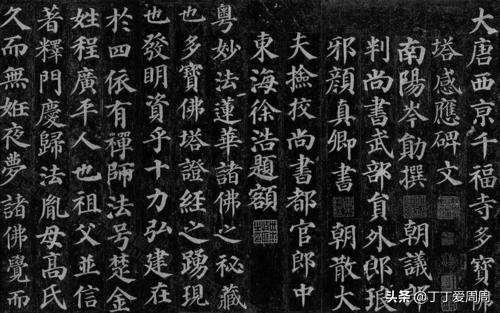 大唐西京千福寺多寶佛
塔感應碑文
南陽岑勛撰 朝議郎
判尚書武部貟外郎琅
邪顏真卿書 朝散大
夫撿挍尚書都官郎中
東海徐浩題額
粵妙法蓮華諸佛之秘藏
也多寶佛塔證經之踴現
也發明資乎十力弘建在
於四依有禪師法号楚金
姓程廣平人也祖父並信
著釋門慶歸法胤母高氏
久而無妊夜夢諸佛覺而
头条 @丁丁爱周周